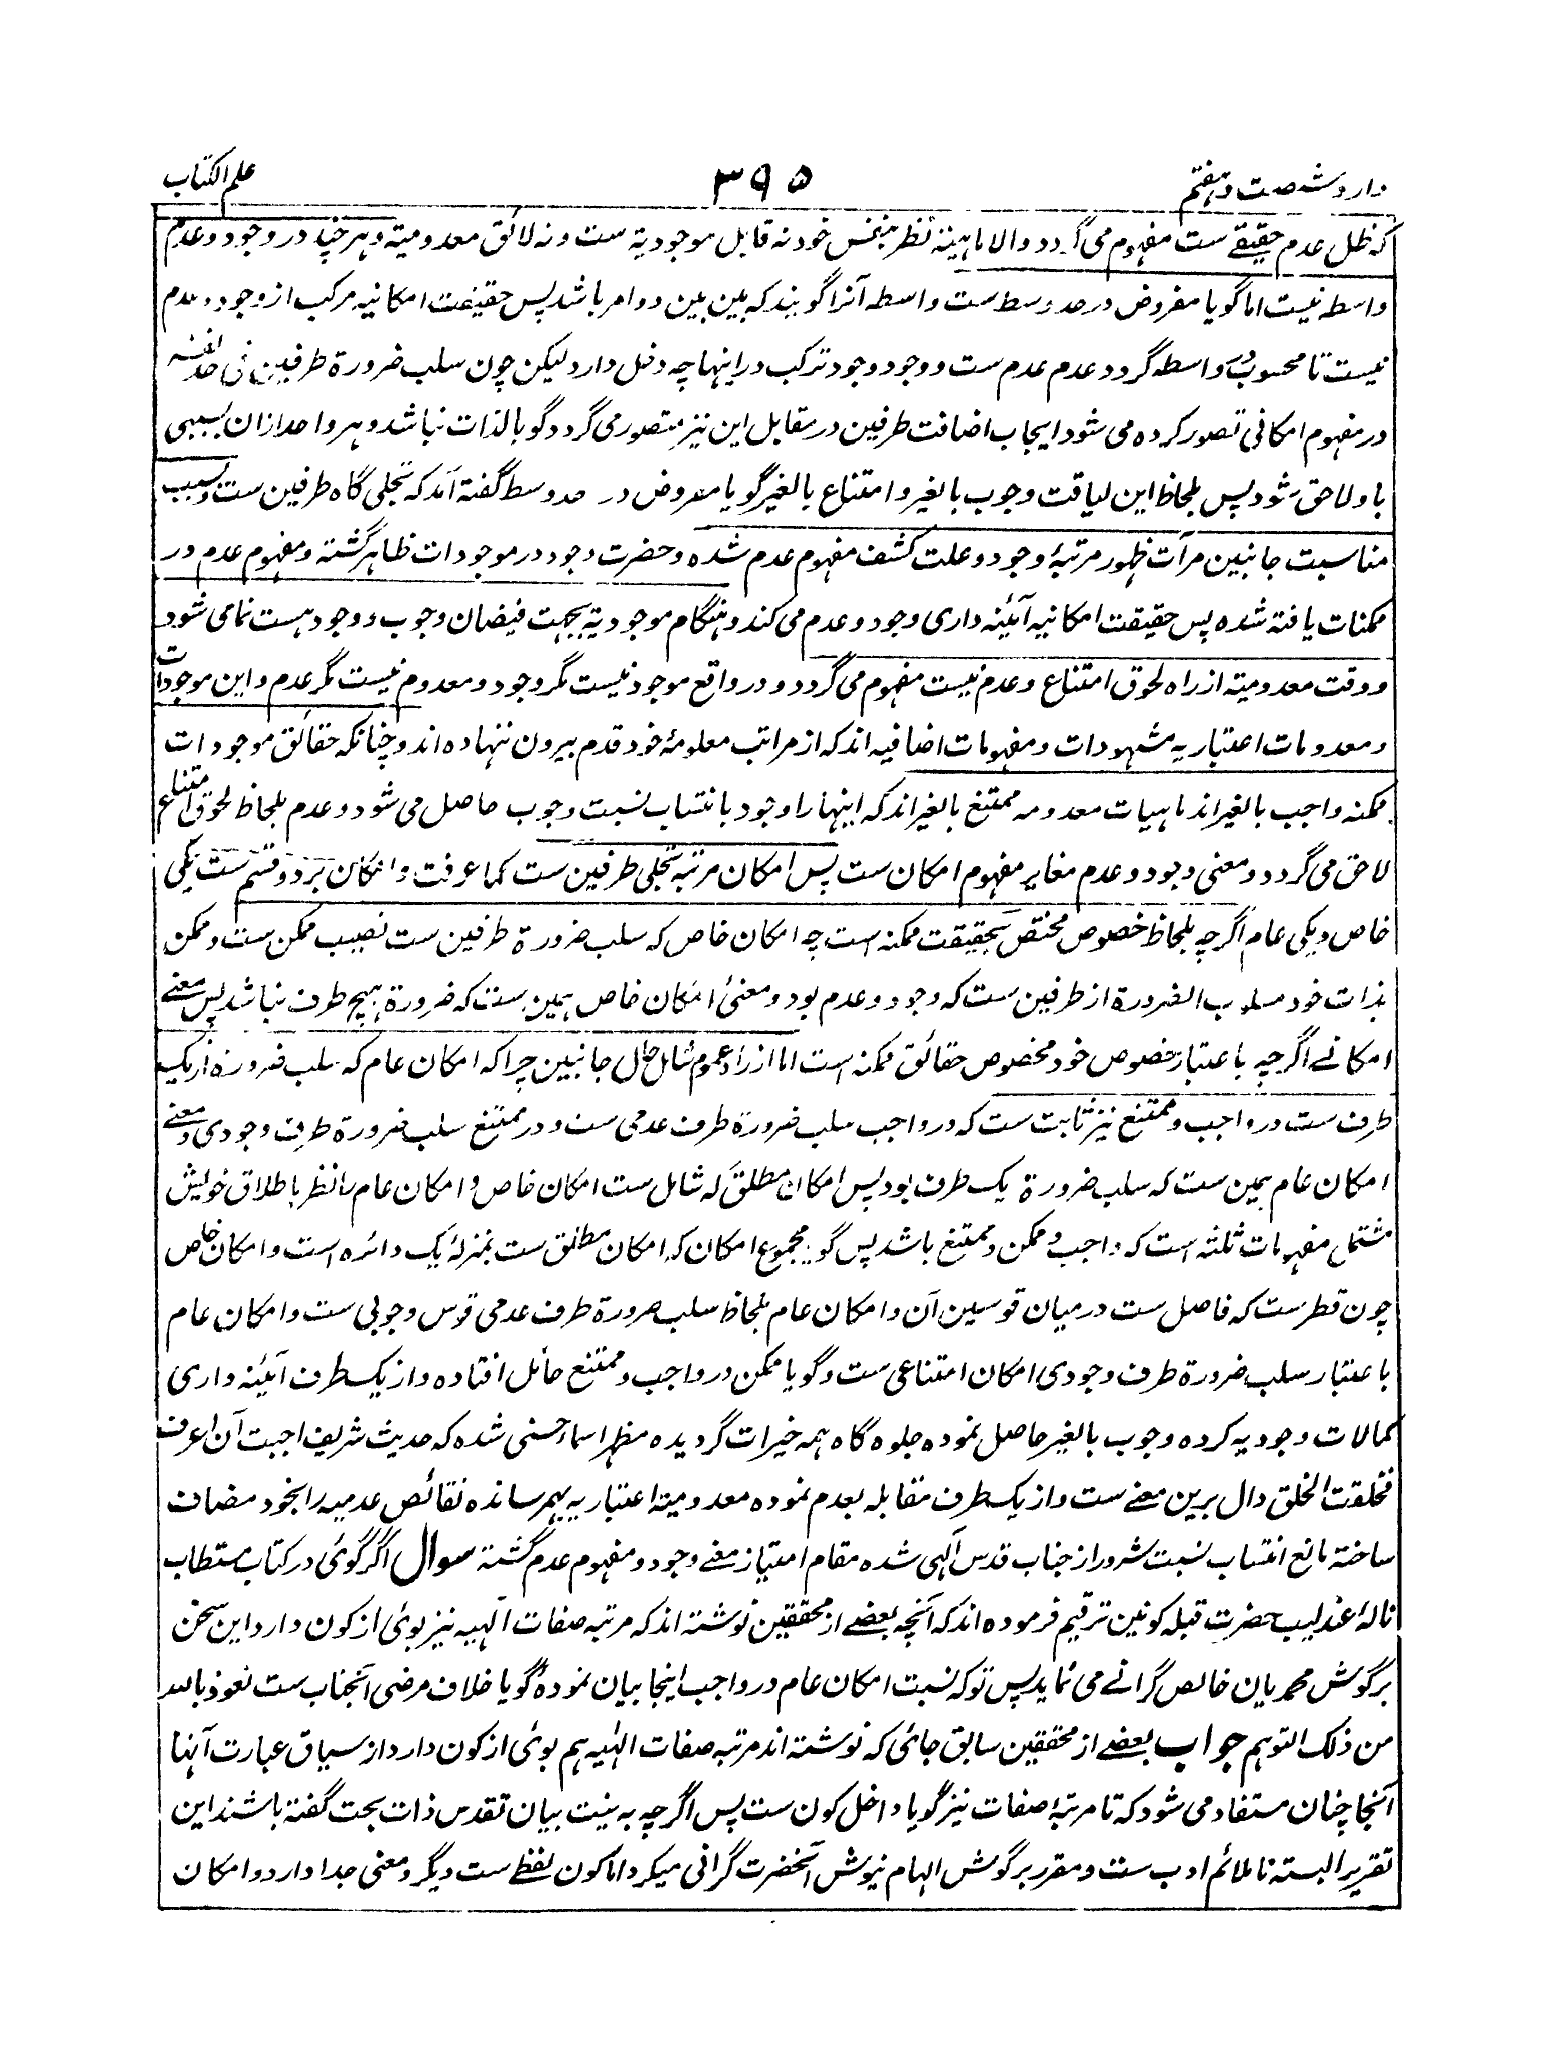 وارد شصت و هفتم
۳۹۵
علم الکتاب
که ظل عدم حقیقے ست مفهوم می گردد والا ماهیته نظر بنفس خود نه قابل موجودیة ست و نه لائق معدومیته و هر چند در وجود و عدم
واسطه نیست اما گویا مفروض در حد وسط ست واسطه آنرا گویند که بین بین دو امر باشد پس حقیقت امکانیه مرکب از وجود و عدم
نیست تا محسوب در واسطه گردد عدم عدم ست و وجود وجود ترکب در اینها چه دخل دارد لیکن چون سلب ضرورة طرفین فی حد نفسه
در مفهوم امکانی تصور کرده می شود ایجاب اضافت طرفین در مقابل این نیز متصور می گردد گو بالذات نباشد و هر واحد ازان بسببی
باو لاحق شود پس بلحاظ این لیاقت وجوب بالغیر و امتناع بالغیر گویا معروض در حد وسط گفته آمد که تجلی گاه طرفین ست و بسبب
مناسبت جانبین مرآت ظهور مرتبهٔ وجود و علت کشف مفهوم عدم شده و حضرت وجود در موجودات ظاهر گشته و مفهوم عدم در
ممکنات یافته شده پس حقیقت امکانیه آئینه داری وجود و عدم می کند و هنگام موجودیة بجهت فیضان وجوب و وجود هست نما می شود
و وقت معدومیته از راه لحوق امتناع و عدم نیست مفهوم می گردد و در واقع موجود نیست مگر وجود و معدوم نیست مگر عدم و این موجودات
و معدومات اعتباریه مشهودات و مفهومات اضافیه اند که از مراتب معلومهٔ خود قدم بیرون ننهاده اند و چنانکه حقائق موجودات
ممکنه واجب بالغیر اند ماهیات معدومه ممتنع بالغیر اند که اینها را وجود بانتساب نسبت وجوب حاصل می شود و عدم بلحاظ لحوق امتناع
لاحق می گردد و معنی وجود و عدم مغایر مفهوم امکان ست پس امکان مرتبه تجلی طرفین ست کما عرفت و امکان بر دو قسم ست یکی
خاص و یکی عام اگرچه بلحاظ خصوص مختص بحقیقت ممکنه است چه امکان خاص که سلب ضرورة طرفین ست نصیب ممکن ست و ممکن
بذات خود مسلوب الضرورة از طرفین ست که وجود و عدم بود و معنئ امکان خاص همین ست که ضرورة هیچ طرف نباشد پس معنے
امکانے اگرچه باعتبار خصوص خود مخصوص حقائق ممکنه است اما از راه عموم شامل حال جانبین چرا که امکان عام که سلب ضرورة از یک
طرف ست در واجب و ممتنع نیز ثابت ست که در واجب سلب ضرورة طرف عدمی ست و در ممتنع سلب ضرورة طرف وجودی و معنے
امکان عام همین ست که سلب ضرورة یک طرف بود پس امکان مطلق که شامل ست امکان خاص و امکان عام را نظر باطلاق خویش
مشتمل مفهومات ثلثه است که واجب و ممکن و ممتنع باشد پس گویا مجموع امکان که امکان مطلق ست بمنزلهٔ یک دائره است و امکان خاص
چون قطر ست که فاصل ست درمیان قوسین آن و امکان عام بلحاظ سلب ضرورة طرف عدمی قوس وجوبی ست و امکان عام
باعتبار سلب ضرورة طرف وجودی امکان امتناعی ست و گویا ممکن در واجب و ممتنع حائل افتاده و از یک طرف آئینه داری
کمالات وجودیه کرده وجوب بالغیر حاصل نموده جلوه گاه همه خیرات گردیده مظهر اسماء حسنی شده که حدیث شریف احببت آن اعرف
فخلقت الخلق دال برین معنے ست و از یک طرف مقابله بعدم نموده معدومیته اعتباریه بهمرسانده نقائص عدمیه را بخود مضاف
ساخته مانع انتساب نسبت شرور از جناب قدس الهی شده مقام امتیاز معنے وجود و مفهوم عدم گشته سوال اگر گوئی در کتاب مستطاب
نالهٔ عندلیب حضرت قبله کونین ترقیم فرموده اند که آنچه بعضے از محققین نوشته اند که مرتبه صفات الهیه نیز بوئی از کون دارد این سخن
بر گوش محمدیان خالص گرانے می نماید پس تو که نسبت امکان عام در واجب اینجا بیان نمودهٔ گویا خلاف مرضی آنجناب ست نعوذ بالله
من ذلک التوهم جواب بعضے از محققین سابق جائی که نوشته اند مرتبه صفات الهیه هم بوئی از کون دارد از سیاق عبارت آنها
آنجا چنان مستفاد می شود که تا مرتبهٔ صفات نیز گویا داخل کون ست پس اگرچه به نیت بیان تقدس ذات بحت گفته باشند این
تقریر البسته ناملائم ادب ست و مقرر بر گوش الهام نیوش آنحضرت گرانی میکرد اما کون لفظے ست دیگر و معنی جدا دارد و امکان